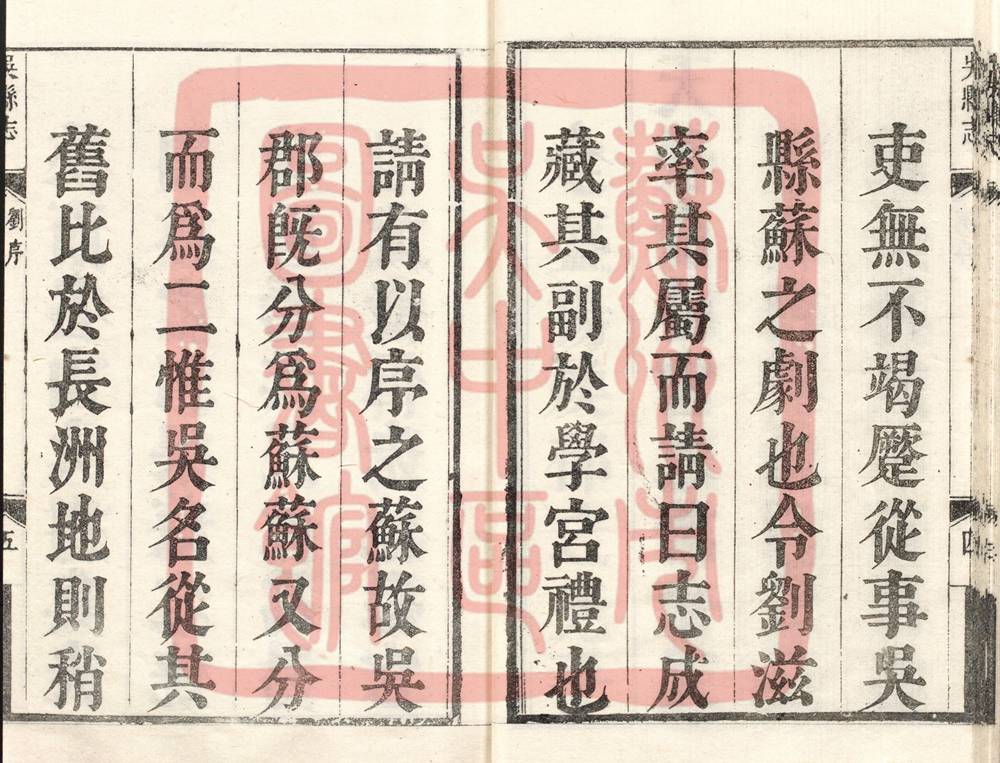 吏無不竭蹷從事吳
縣蘇之劇也令劉滋
率其屬而請曰志成
藏其副於學宮禮也
請有以序之蘇故吳
郡既分爲蘇蘇又分
而爲二惟吳名從其
舊比於長洲地則稍
吳縣志
四
吳縣志
劉序
五
蘇州市
吳中區
圖書館